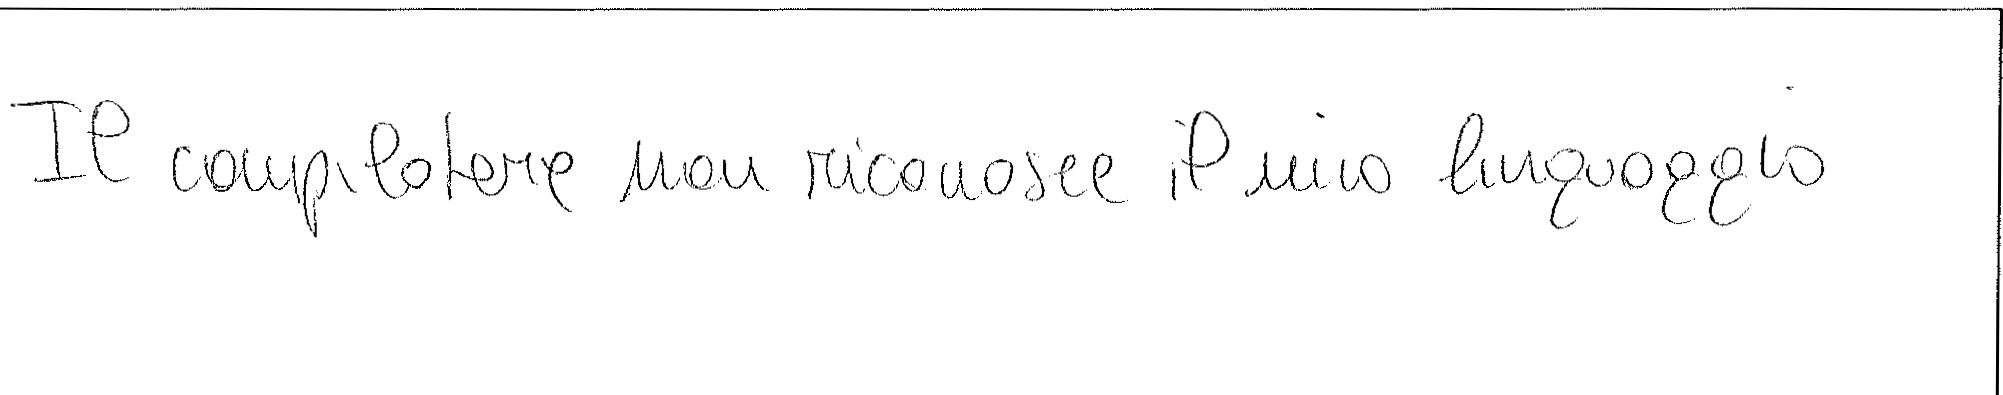 Il compilatore non riconosce il mio linguaggio